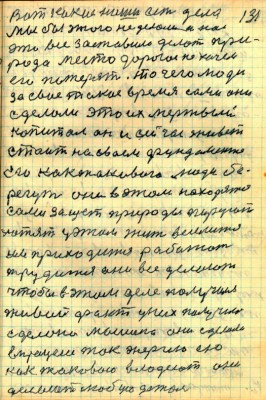 Вот какие наши есть дела 131
мы бы этого не делали а нас
это все заставило делать при-
рода место дорогое но нечем
его потерять. Это чего люди
за свое такое время сами они
сделали это их мертвый
капитал он и сейчас живет
стоит на своем фундаменте
его как такового люди бе-
регут они в этом находятся
сами за щет природы
хотят у этом жить
им приходится работать
трудится они все делают
чтобы в этом деле получился
живый факт у них получился
сделана машина они сделали
такую энергию ею
как таковою владеют они
делают любую деталь